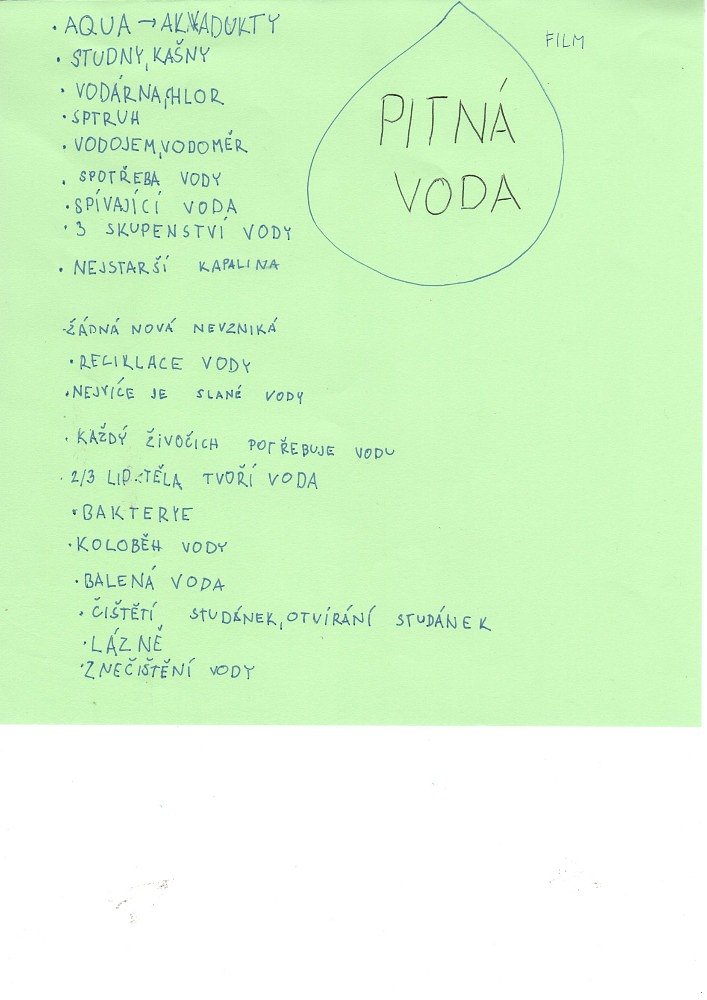 • AQUA → AKVADUKTY
• STUDNY, KAŠNY
• VODÁRNA, CHLOR
• SPTRUH
• VODOJEM, VODOMĚR
• SPOTŘEBA VODY
• SPÍVAJÍCÍ VODA
• 3 SKUPENSTVÍ VODY
• NEJSTARŠÍ KAPALINA
FILM
PITNÁ
VODA
• ŽÁDNÁ NOVÁ NEVZNIKÁ
• RECIKLACE VODY
• NEJVÍCE JE SLANÉ VODY
• KAŽDÝ ŽIVOČICH POTŘEBUJE VODU
• 2/3 LID. TĚLA TVOŘÍ VODA
• BAKTERYE
• KOLOBĚH VODY
• BALENÁ VODA
• ČIŠTĚTÍ STUDÁNEK, OTVÍRÁNÍ STUDÁNEK
• LÁZNĚ
• ZNEČIŠTĚNÍ VODY